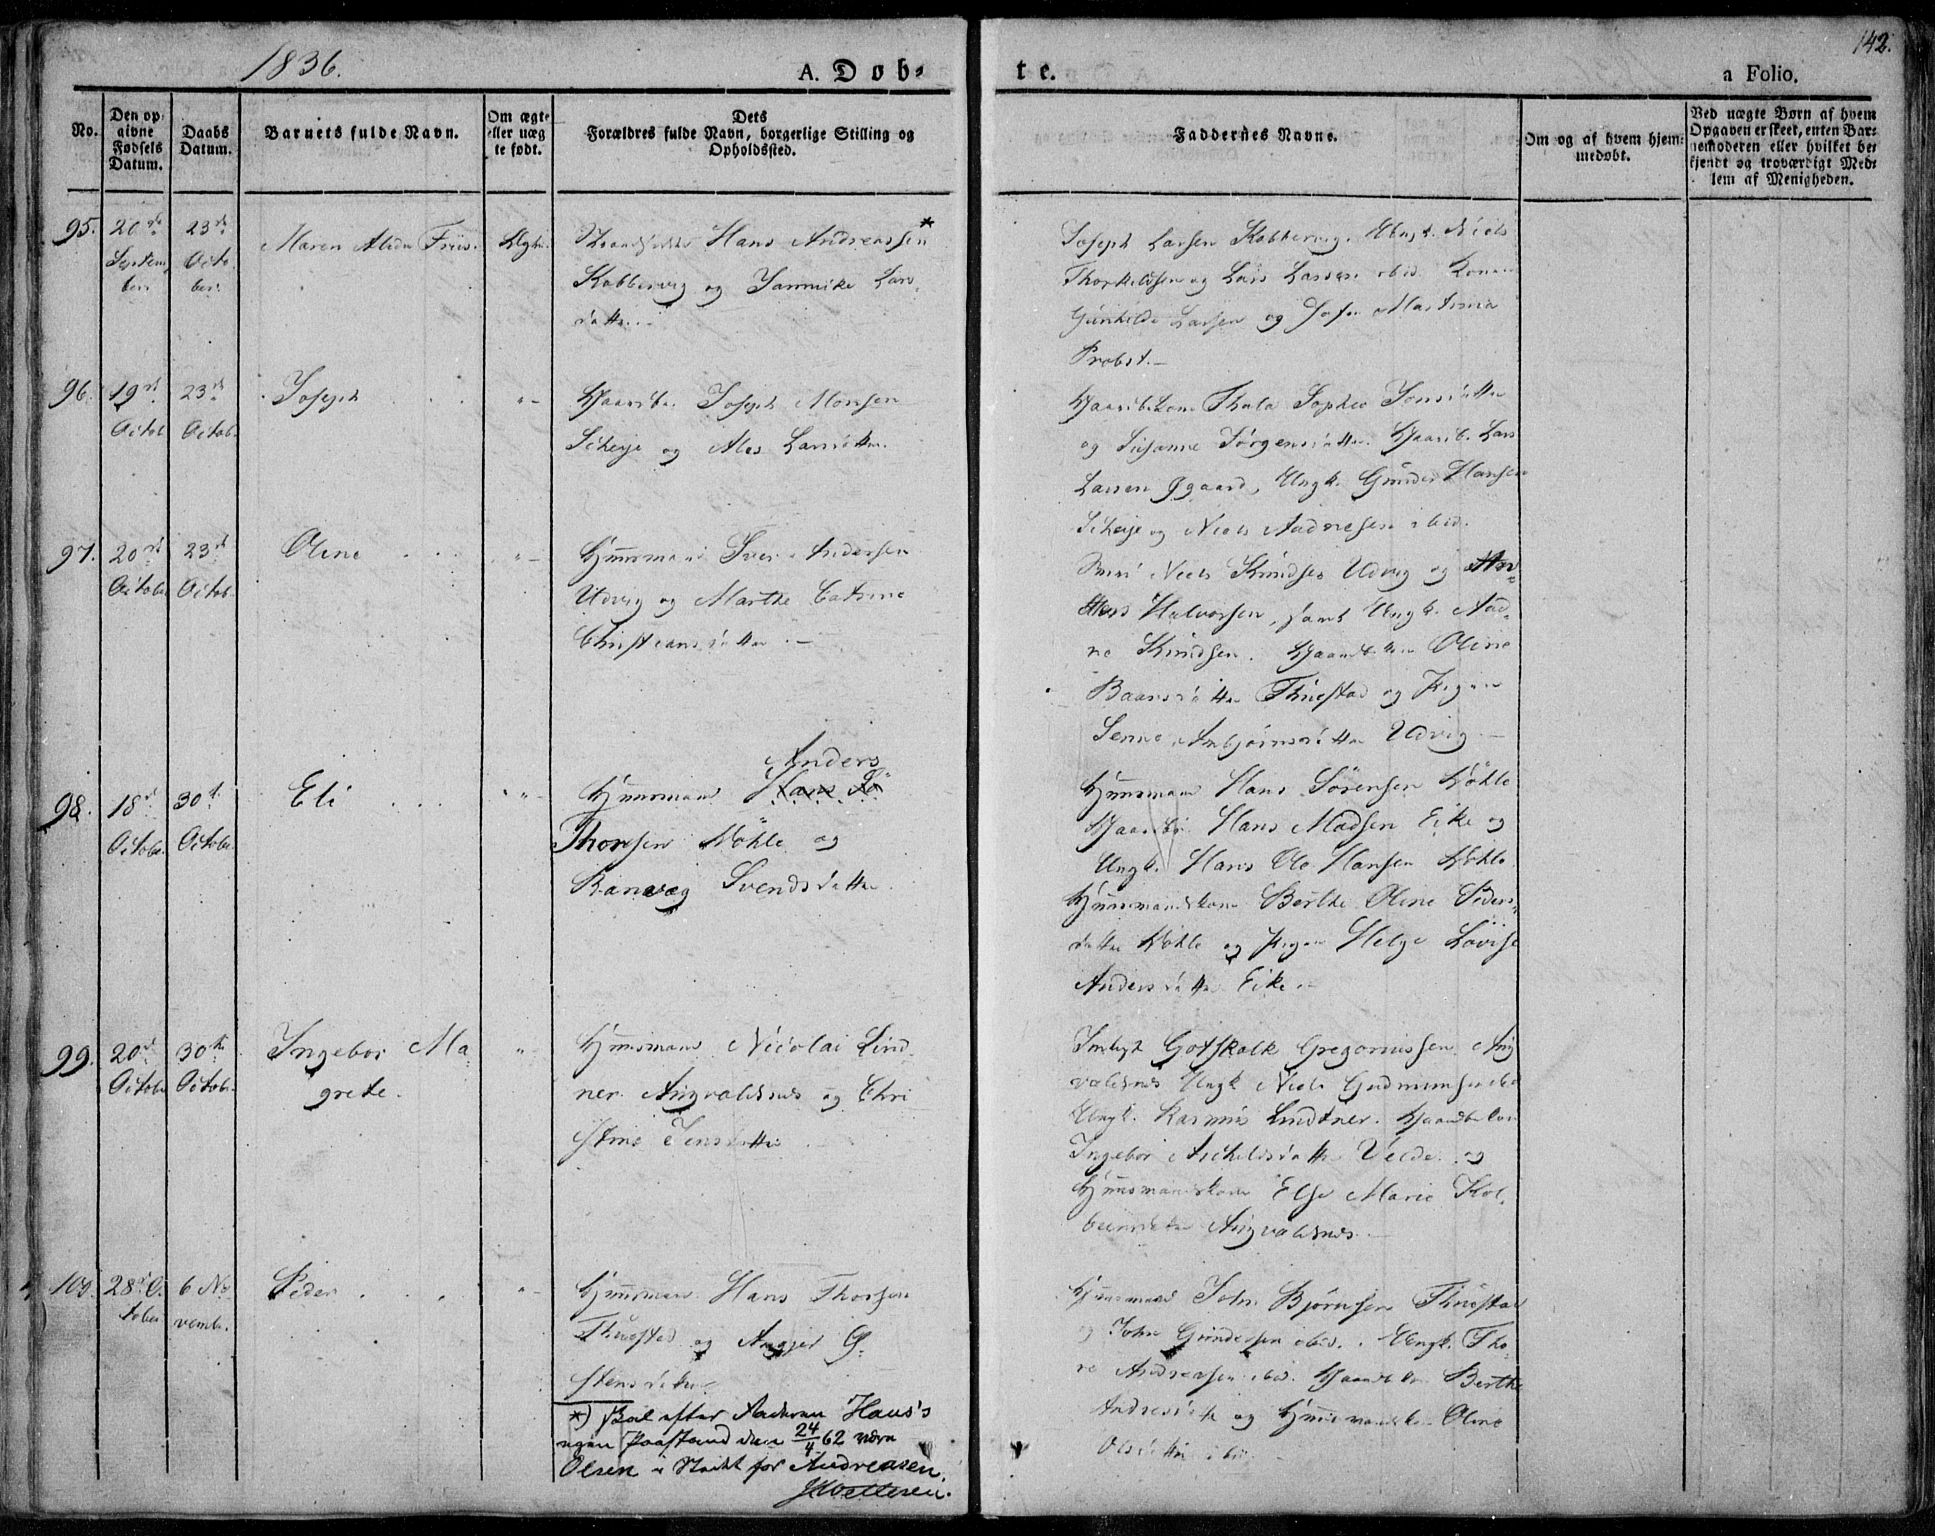 1836.
A. Döb-
te.
142.
a Folio.
No.
Den op-
givne
Fødsels
Datum.
Daabs
Datum.
Barnets fulde Navn.
Om ægte
eller uæg
te født.
Dets
Forældres fulde Navn, borgerlige Stilling og
Opholdssted.
Faddernes Navne.
Om og af hvem hjem-
medøbt.
Ved uægte Børn af hvem
Opgaven er skeet, enten Bar-
nemoderen eller hvilket be-
kjendt og troværdigt Med-
lem af Menigheden.
95.
20de
Septem
ber.
23de
Octo
ber.
Maren Alida Friis.
Ægte.
Strandsidder Hans Andreassen *
Kobbervig og Jannike Lars
datter.
Joseph Larsen Kobbervig. Ungk. Niels
Thorkeldsen og Lars Larsen ibid. Konen
Gunhilde Larsen og Martina
Probst.
96.
19de
Octob.
23de
Octob.
Joseph
"
Gaardbr. Joseph Monsen
og Larsdatter.
Gaardb. Kone Sophia Jonsdatter
og Susanne Jørgensdatter. Gaardb. Lars
Larsen Øgaard, Ungk. Gunder Hansen
og Niels Aadnesen ibid.
97.
20de
October
23de
Octob.
Oline
"
Huusmand Iver Andersen
Udvig og Marthe Catrine
Christiansdatter.
Niels Knudsen Udvig og An-
ders Halvorsen, samt Ungk. Aad-
ne Knudsen. Oline
Baarsdatter Thuestad og Pigen
Ambjørnsdatter Udvig
98.
18de
October.
30te
October.
Eli
"
Anders
Huusmand Hans
Thorsen Vöhle og
Ranveg Svendsdatter.
Huusmand Hans Sörensen Vöhle
Gaardbr. Hans Madsen Eike og
Ungk. Hans Ole Hansen Vöhle
Huusmandskone Berthe Oline Peders-
datter Vöhle og Pigen Helge Lovise
Andersdatter Eike.
99.
20de
October
30te
October.
Ingebor Ma
grete.
"
Huusmand Nicolai Lind-
ner Augvaldsnes og Chri
stine Jensdatter
Gotskalk Gregoriussen Aug
valdsnes Ungk Niels Gudmunsen ibid
Ungk. Rasmus Lindtner. Gaardbr. Kone
Ingebor Askeldsdatter Velde og
Huusmandskone Else Marie Kol-
beensdatter Augvaldsnes.
100.
28de Oc
tober
6 No
vemb.
Peder
"
Huusmand Hans Thorsen
Thuestad og
stensdatter.
Huusmand John Bjørnsen Thuestad
og John Gundersen ibid. Ungk. Tho-
re Andreasen ibid. Berthe
Andreasdatter og Huusmandsk. Oline
Olsdatter ibid
*) Skal efter Faderen Hans's
egen Paastand den 24/4 62 være
Olsen i Stedet for Andreasen.